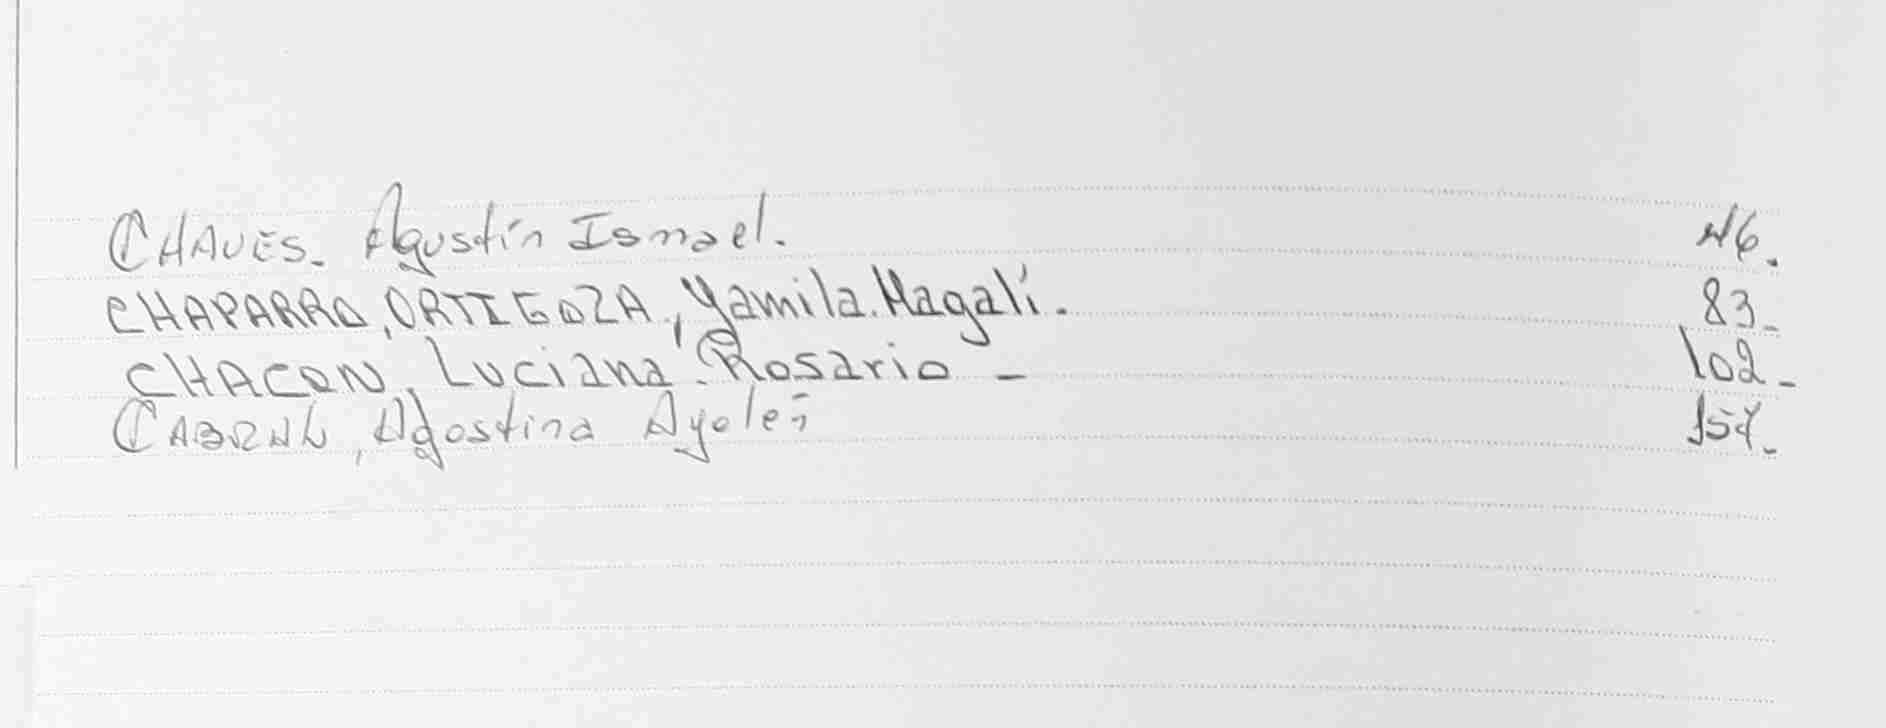 CHAVES. Agustín Ismael. 46.
CHAPARRO, ORTIGOZA, Yamila. Magalí. 83-
CHACON, Luciana. Rosario - 102-
CABRAL, Agostina Ayelei 157-